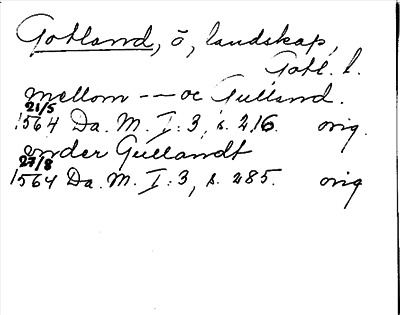 Gotland, ö, landskap,
Gotl. l.
mellom -- oc Gulland.
21/5
1564 Da. M. I: 3, s. 216. orig.
onder Gullandt
27/8
1564 Da. M. I: 3, s. 285. orig